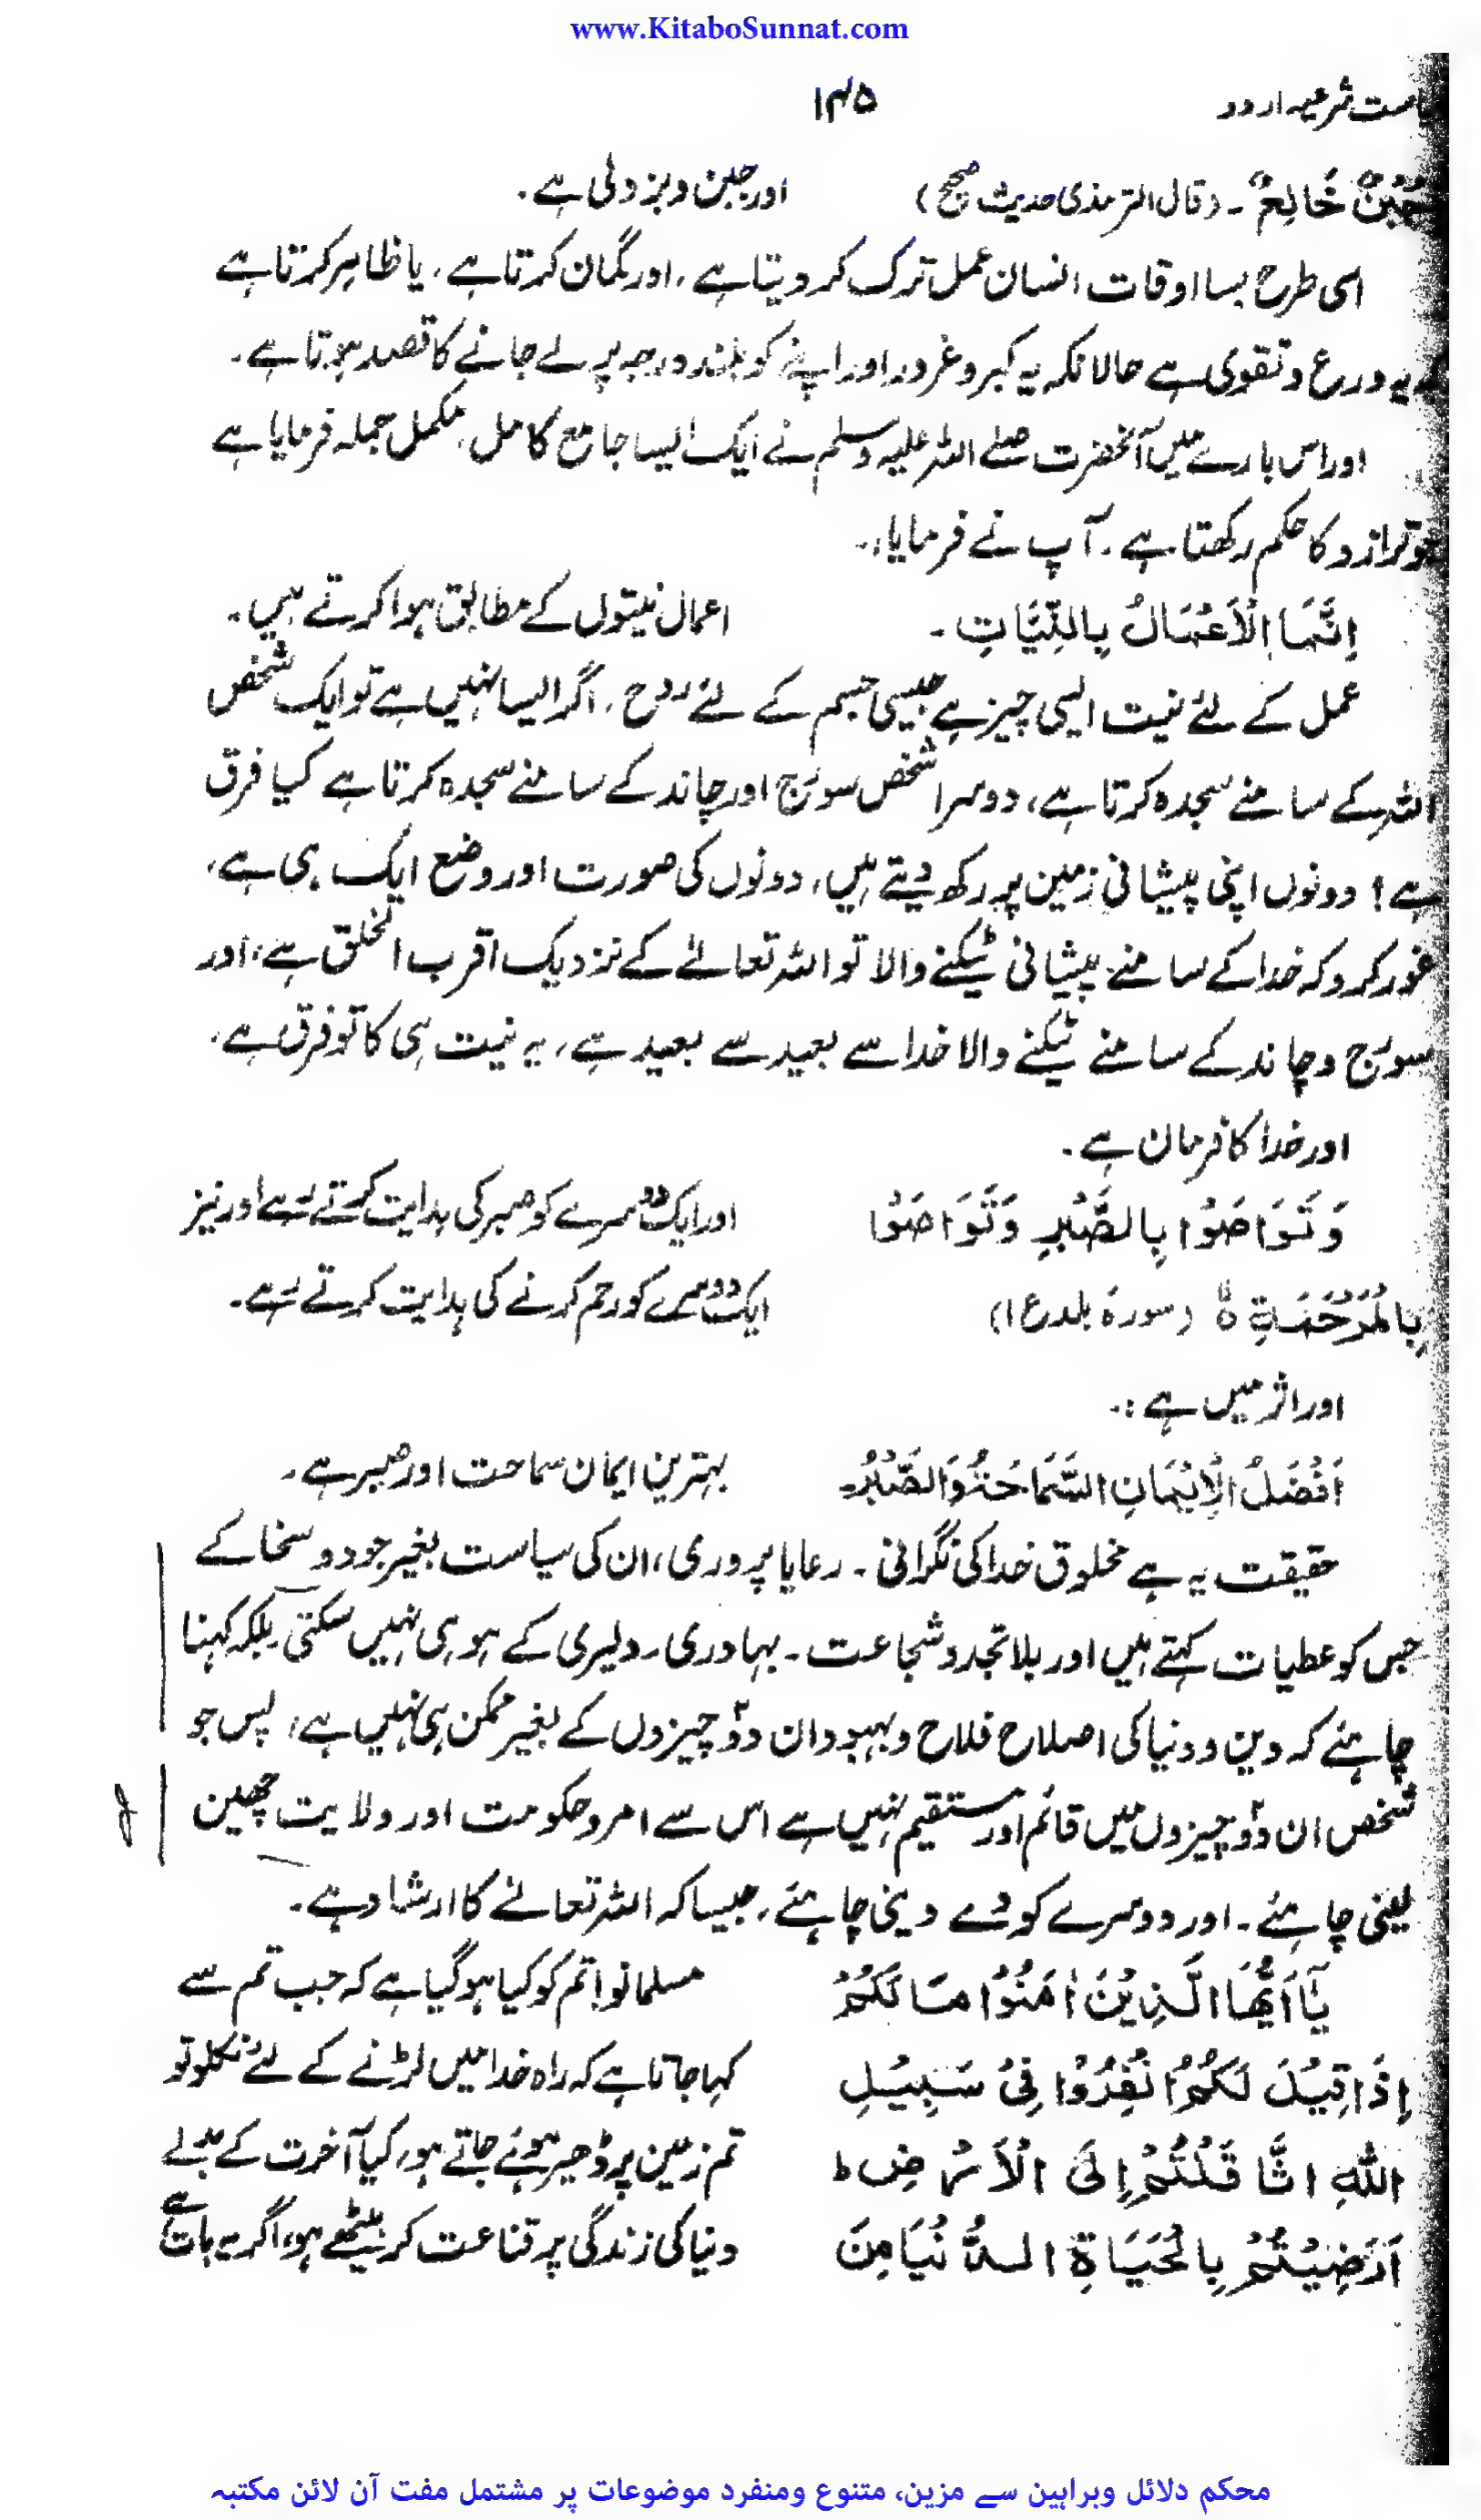 www.KitaboSunnat.com
سیاست شرعیہ اردو ۱۴۵
جُبْنٌ خَالِعٌ ۔ (قال الترمذی حدیث صحیح) اور جبن و بزدلی ہے۔
اسی طرح بسا اوقات انسان عمل ترک کر دیتا ہے، اور گمان کرتا ہے، یا ظاہر کرتا ہے
کہ یہ ورع و تقوی ہے حالانکہ یہ کبر و غرور اور اپنے کو بلند درجہ پر لے جانے کا قصد ہوتا ہے۔
اور اس بارے میں آنحضرت صلے اللہ علیہ وسلم نے ایک ایسا جامع کامل، مکمل جملہ فرمایا ہے
جو ترازو کا حکم رکھتا ہے۔ آپ نے فرمایا:۔
اِنَّمَا الْاَعْمَالُ بِالنِّيَّاتِ ۔ اعمال نیتوں کے مطابق ہوا کرتے ہیں۔
عمل کے لئے نیت ایسی چیز ہے جیسی جسم کے لئے روح۔ اگر ایسا نہیں ہے تو ایک شخص
اللہ کے سامنے سجدہ کرتا ہے، دوسرا شخص سورج اور چاند کے سامنے سجدہ کرتا ہے کیا فرق
ہے؟ دونوں اپنی پیشانی زمین پر رکھ دیتے ہیں، دونوں کی صورت اور وضع ایک ہی ہے،
غور کرو کہ خدا کے سامنے پیشانی ٹیکنے والا تو اللہ تعالےٰ کے نزدیک اقرب الخلق ہے، اور
سورج و چاند کے سامنے ٹیکنے والا خدا سے بعید سے بعید ہے، یہ نیت ہی کا تو فرق ہے،
اور خدا کا فرمان ہے۔
وَتَوَاصَوْا بِالصَّبْرِ وَتَوَاصَوْا اور ایک دوسرے کو صبر کی ہدایت کرتے رہے اور نیز
بِالْمَرْحَمَةِ ہ (سورۂ بلد ع ۱) ایک دوسرے کو رحم کرنے کی ہدایت کرتے رہے۔
اور اثر میں ہے :۔
اَفْضَلُ الْاِيْمَانِ السَّمَاحَةُ وَالصَّبْرُ۔ بہترین ایمان سماحت اور صبر ہے۔
حقیقت یہ ہے مخلوق خدا کی نگرانی ۔ رعایا پروری، ان کی سیاست بغیر جود و سخا کے
جس کو عطیات کہتے ہیں اور بلا تجد و شجاعت ۔ بہادری ۔ دلیری کے ہو ہی نہیں سکتی، بلکہ کہنا
چاہئے کہ دین و دنیا کی اصلاح فلاح و بہبود ان دو چیزوں کے بغیر ممکن ہی نہیں ہے، پس جو
شخص ان دو چیزوں میں قائم اور مستقیم نہیں ہے اس سے امر و حکومت اور ولایت چھین
لینی چاہئے۔ اور دوسرے کو دے دینی چاہئے، جیسا کہ اللہ تعالےٰ کا ارشاد ہے۔
يَآ اَيُّهَا الَّذِيْنَ اٰمَنُوْا مَا لَكُمْ مسلمانو! تم کو کیا ہو گیا ہے کہ جب تم سے
اِذَا قِيْلَ لَكُمُ انْفِرُوْا فِيْ سَبِيْلِ کہا جاتا ہے کہ راہ خدا میں لڑنے کے لئے نکلو تو
اللهِ اثَّاقَلْتُمْ اِلَى الْاَرْضِ ط تم زمین پر ڈھیر ہوئے جاتے ہو، کیا آخرت کے بدلے
اَرَضِيْتُمْ بِالْحَيَاةِ الدُّنْيَا مِنَ دنیا کی زندگی پر قناعت کر بیٹھے ہو، اگر یہ بات ہے
محکم دلائل وبراہین سے مزین، متنوع ومنفرد موضوعات پر مشتمل مفت آن لائن مکتبہ